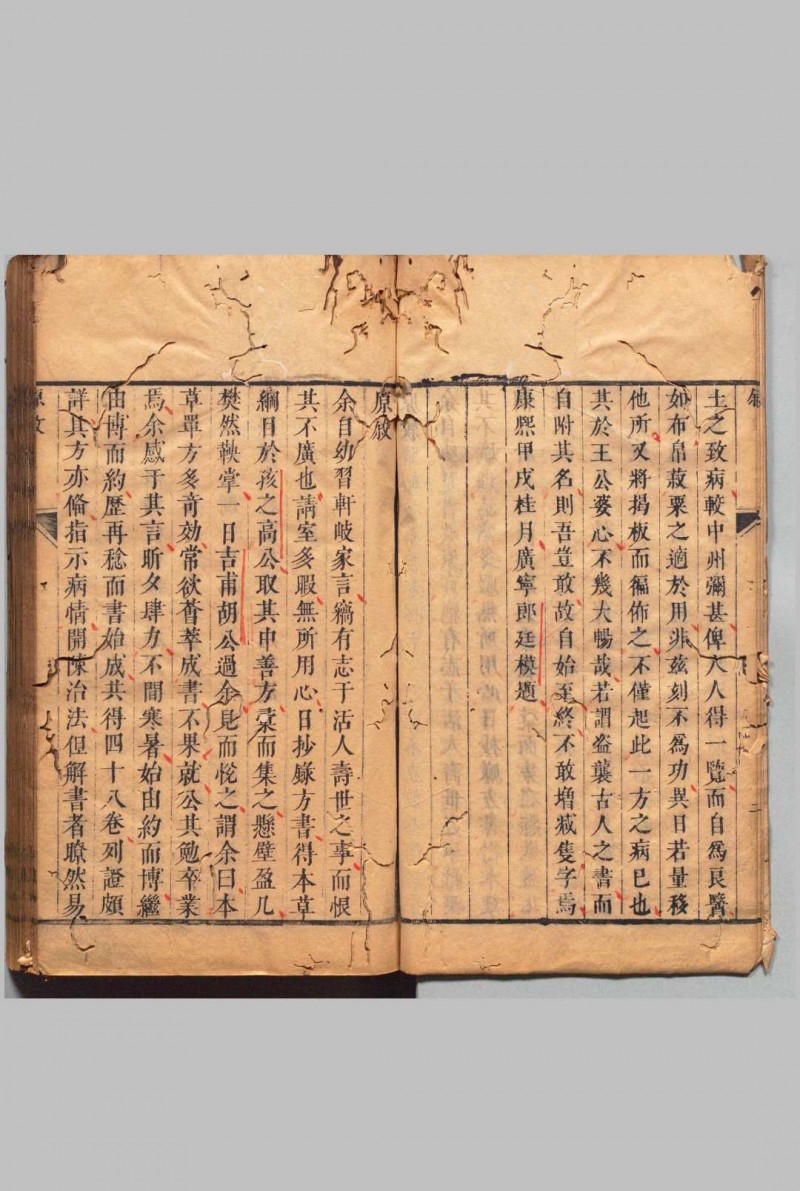 土之致病較中州彌甚俾人人得一覽而自為良醫
如布帛菽粟之適於用非茲刻不為功異日若量移
他所又將揭板而徧佈之不僅起此一方之病已也
其於王公婆心不幾大暢哉若謂盗襲古人之書而
自附其名則吾豈敢故自始至終不敢增減隻字焉
康熙甲戌桂月廣寧郎廷模題
原敘
余自幼習軒岐家言竊有志于活人壽世之事而恨
其不廣也請室多暇無所用心日抄錄方書得本草
綱目於孩之高公取其中善方彚而集之懸壁盈几
樊然鞅掌一日吉甫胡公過余見而悅之謂余曰本
草單方多奇効常欲薈萃成書不果就公其勉卒業
焉余感于其言昕夕肆力不間寒暑始由約而博繼
由博而約歷再稔而書始成共得四十八卷列證頗
詳其方亦偹指示病情開陳治法但解書者瞭然易
原敘